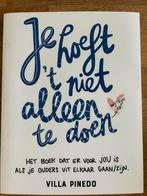 Je hoeft
't niet
alleen
te doen
HET BOEK DAT ER VOOR JOU IS
ALS JE OUDERS UIT ELKAAR GAAN/ZIJN.
VILLA PINEDO